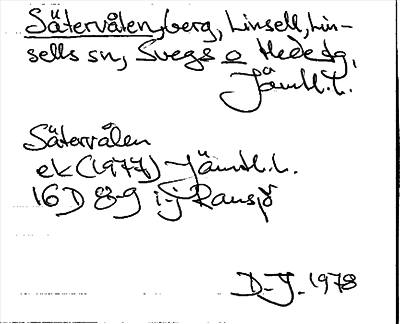 Sätervålen, berg, Linsell, Lin-
sells sn, Svegs o Hedetg,
Jämtl.l.
Sätervålen
ek (1977) Jämtl.l.
16D 8-9 i-j Ransjö
D-J. 1978